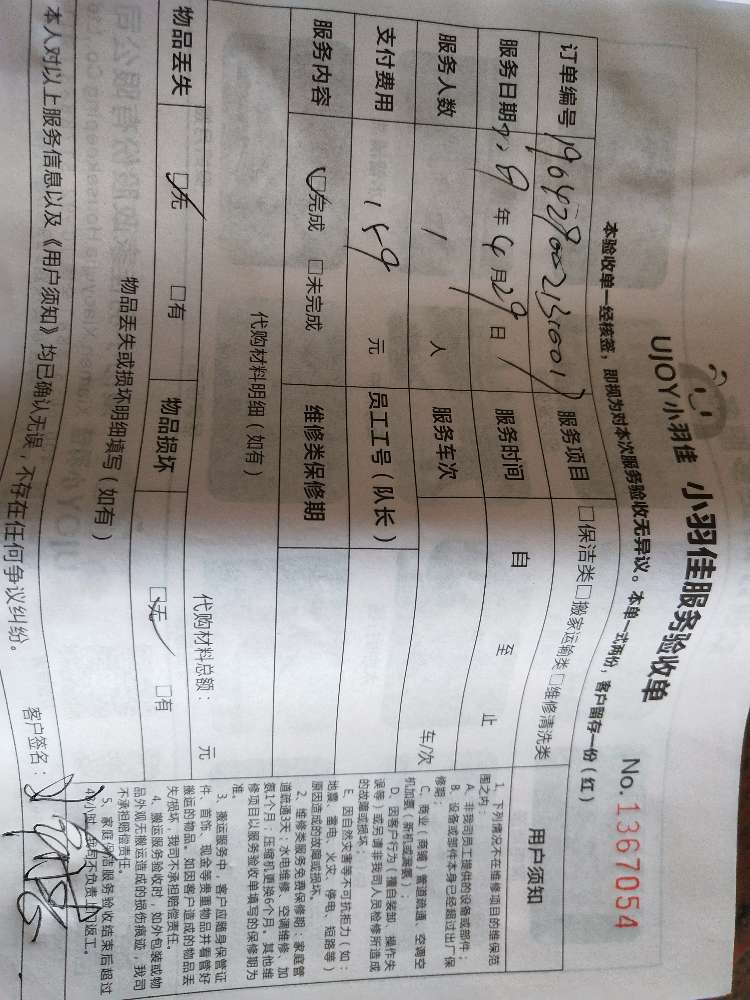 UJOY小羽佳 小羽佳服务验收单
No.1367054
本验收单一经核签，即视为对本次服务验收无异议。本单一式两份，客户留存一份（红）
订单编号 服务项目 □保洁类□搬家运输类□维修清洗类
服务日期 年4月29日 服务时间 自 至 止
服务人数 1 人 服务车次 车/次
支付费用 159 元 员工工号（队长）
服务内容 □完成 □未完成 维修类保修期
代购材料明细（如有） 代购材料总额： 元
物品丢失 □无 □有 物品损坏 □无 □有
物品丢失或损坏明细填写（如有）
本人对以上服务信息以及《用户须知》均已确认无误，不存在任何争议纠纷。 客户签名：
用户须知
1、下列情况不在维修项目的维保范
围之内：
A、非我司员工提供的设备或部件；
B、设备或部件本身已经超过出厂保
修期；
C、商业（商铺）管道疏通、空调空
机加氨（新机或漏氨）；
D、因客户行为（擅自装卸、操作失
误等）或另请非我司人员检修所造成
的故障或损坏；
E、因自然灾害等不可抗拒力（如：
地震、雷电、火灾、停电、短路等）
原因造成的故障或损坏。
2、维修类服务免费保修期：家庭管
道疏通3天；水电维修、空调维修、加
氨1个月；压缩机更换6个月。其他维
修项目以服务验收单填写的保修期为
准。
3、搬运服务中，客户应随身保管证
件、首饰、现金等贵重物品并看管好
搬运的物品。如因客户造成的物品丢
失/损坏，我司不承担赔偿责任。
4、搬运服务验收时，如外包装或物
品外观无搬运造成的损伤痕迹，我司
不承担赔偿责任。
5、家庭保洁服务验收结束后超过
48小时，我司不负责上门返工。